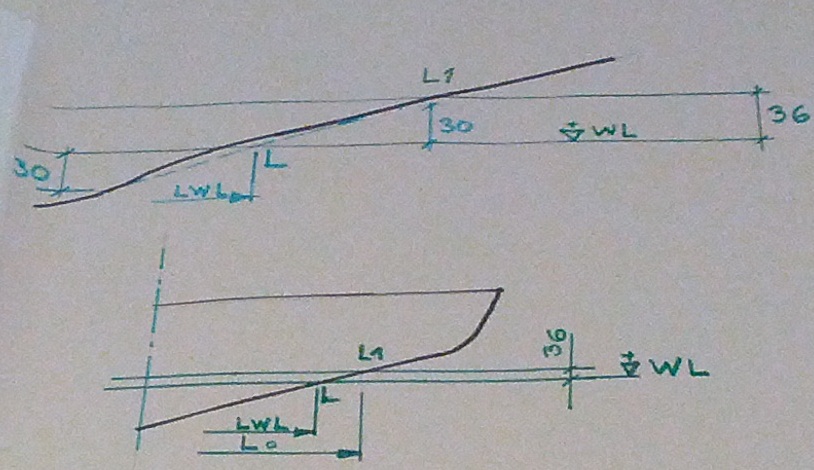 L1
30
36
WL
30
L
LWL
36
L1
WL
L
LWL
Lo